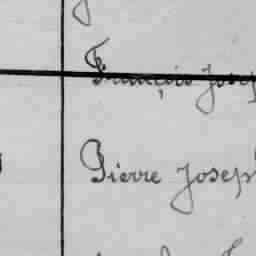 François Josep
Pierre Joseph